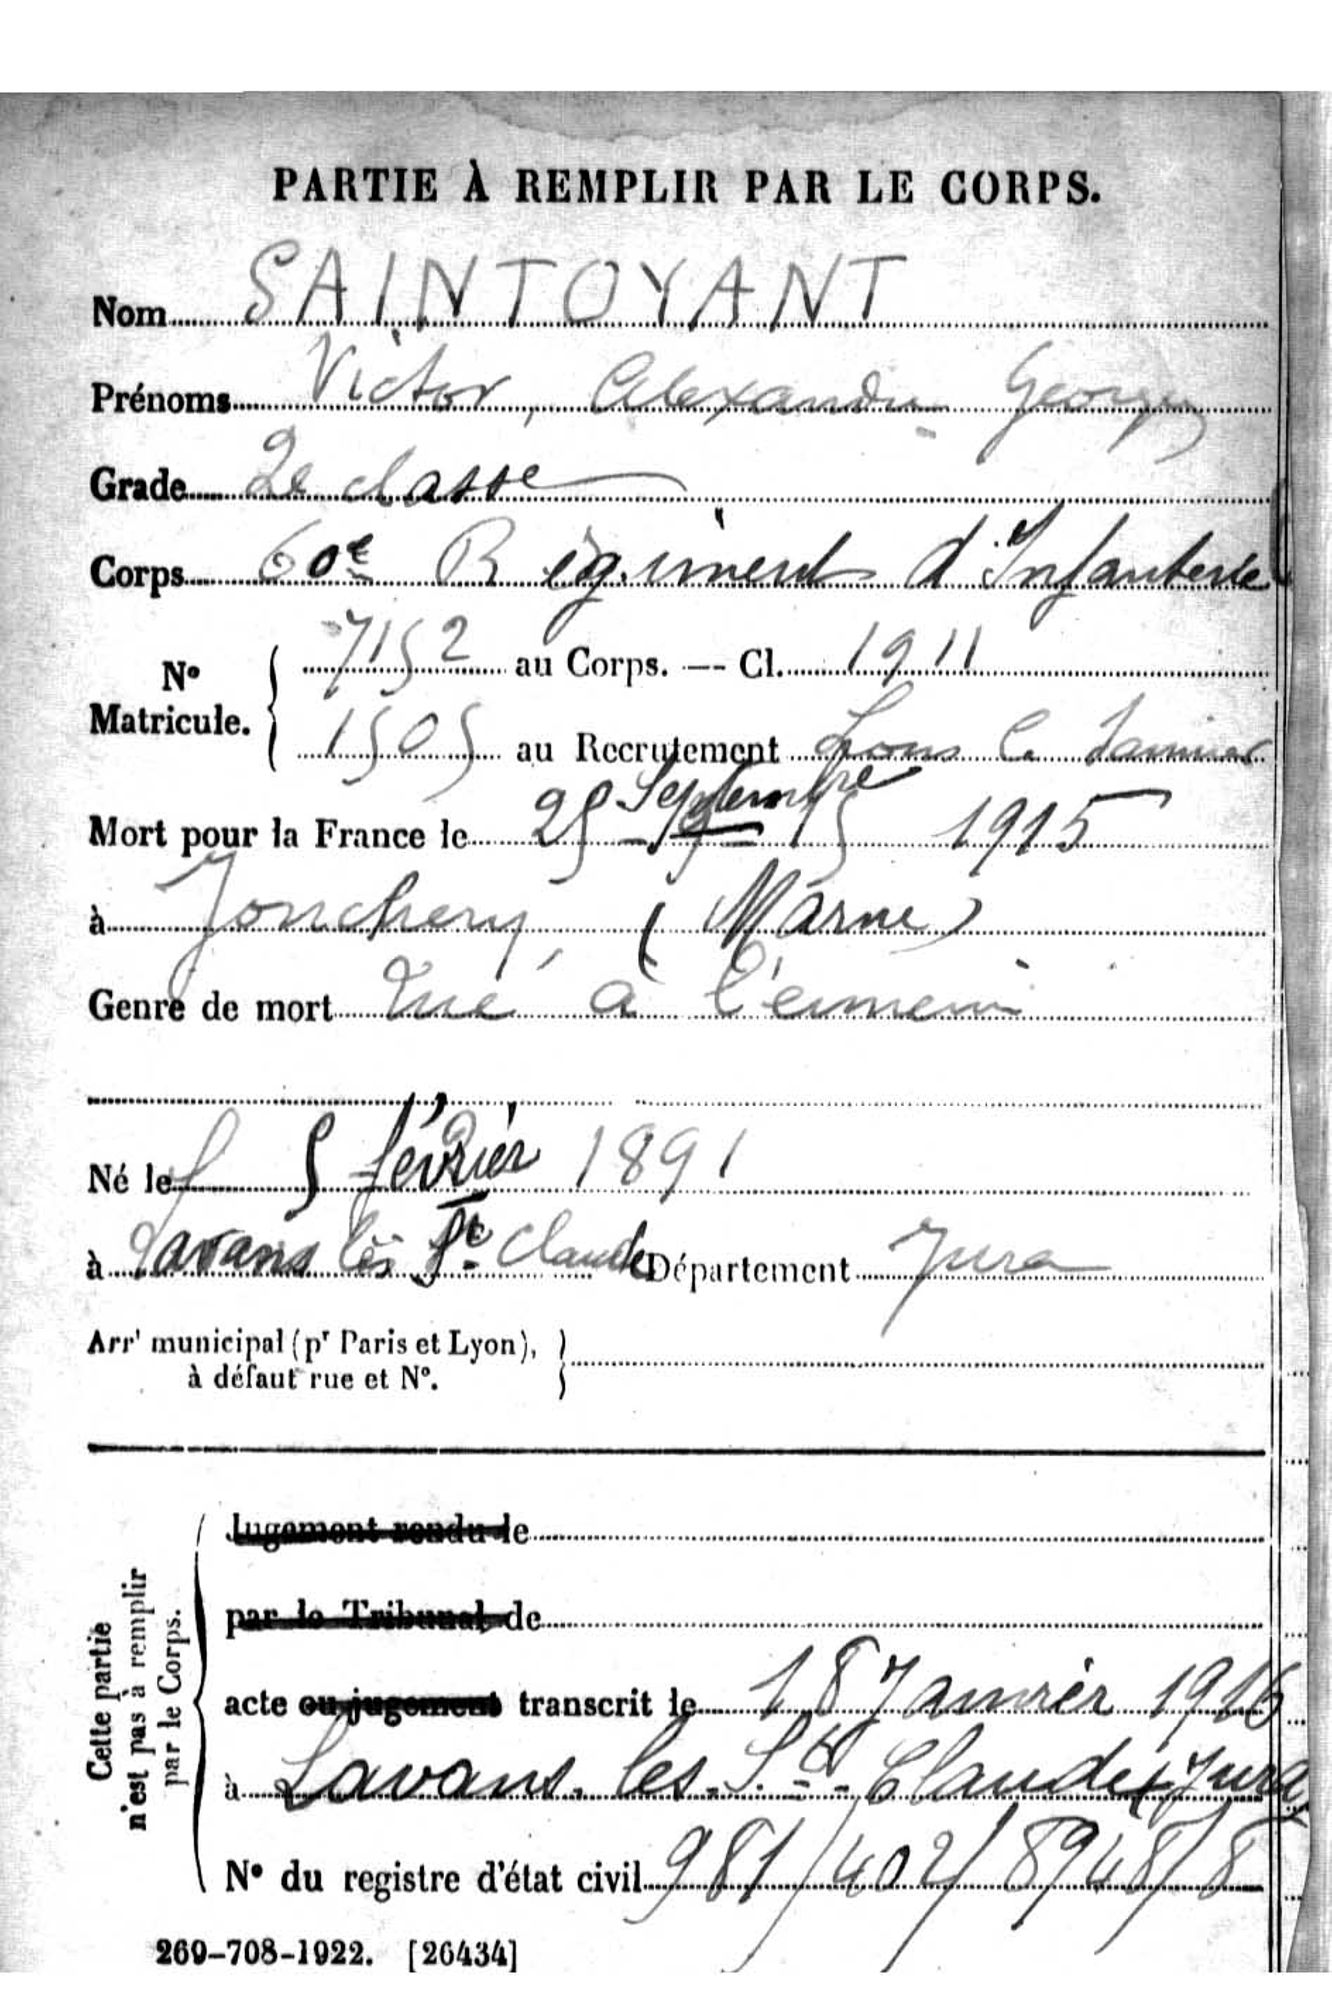 PARTIE À REMPLIR PAR LE CORPS.
Nom SAINTOYANT
Prénoms Victor, Alexandre Georges
Grade 2e classe
Corps 60e Régiment d'Infanterie
No Matricule. { 7152 au Corps. — Cl. 1911
1505 au Recrutement Lons le Saunier
Septembre
Mort pour la France le 25 - 9 - 15 1915
à Jonchery, (Marne)
Genre de mort Tué à l'ennemi
Né le 5 février 1891
à Lavans lès St Claude Département Jura
Arrt municipal (pr Paris et Lyon),
à défaut rue et N°.
Cette partie n'est pas à remplir par le Corps.
Jugement rendu le
par le Tribunal de
acte ou jugement transcrit le 18 Janvier 1916
à Lavans. les. St. Claude (Jura)
N° du registre d'état civil 981/402/8948/8
269-708-1922. [26434]